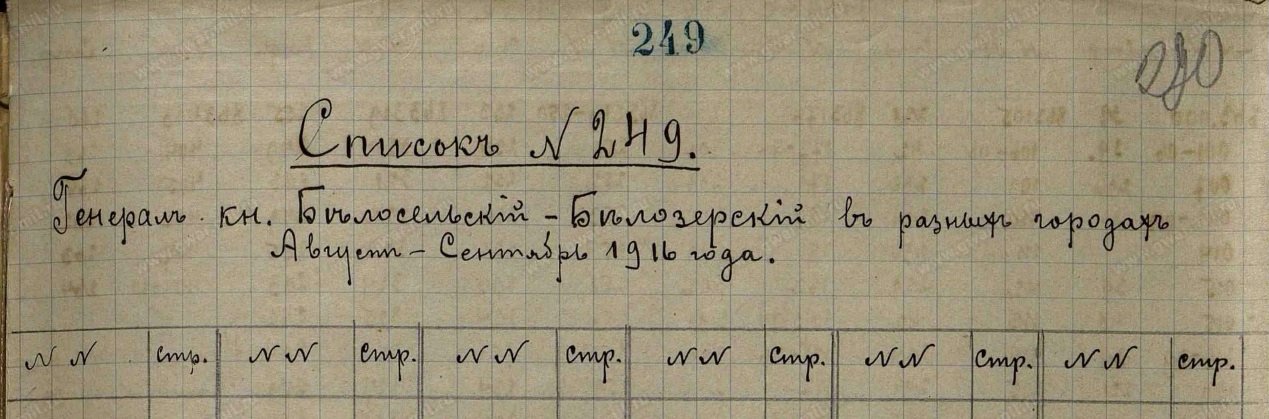 249
280
Списокъ N 249.
Генералъ кн. Бѣлосельскій - Бѣлозерскій въ разныхъ городахъ
Августъ - Сентябрь 1916 года.
N N стр. N N стр. N N стр. N N стр. N N стр. N N стр.